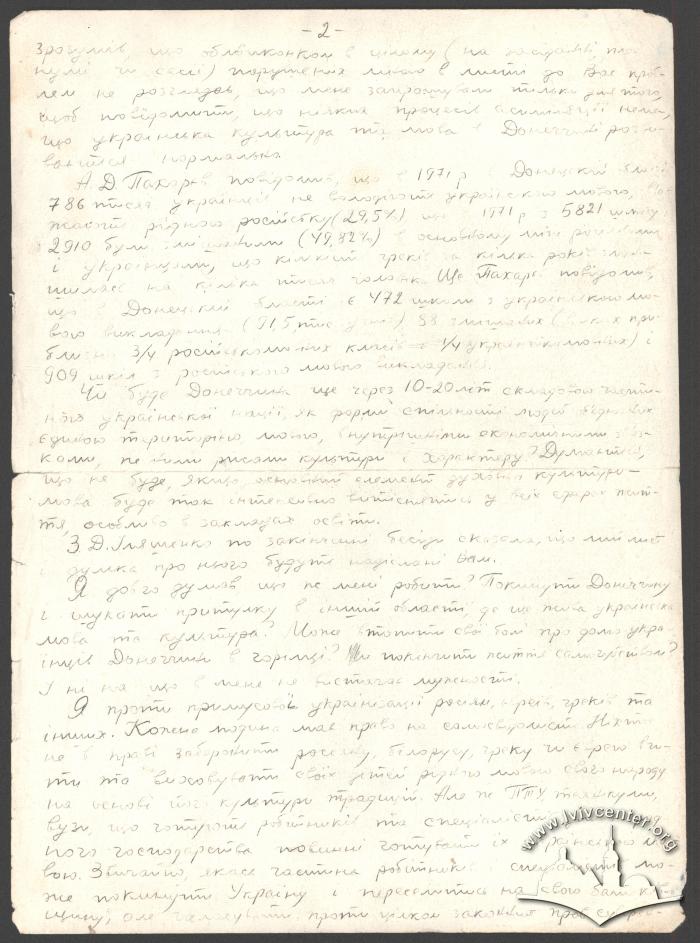 -2-
Зрозумів, що облвиконком в цілому (на засіданні, пле-
нумі чи сесії) порушених мною в листі до Вас проб-
лем не розглядав, що мене запрошували тільки для того,
щоб повідомити, що ніяких процесів асиміляції нема,
що українська культура та мова в Донеччині розви-
ваються нормально.
А.Д. Пахарєв повідомив, що в 1971 р в Донецькій області
786 тисяч українців не володіють українською мовою,
рідною російську (29,5%) що 1971 р з 5821
2910 були змішаними (49,82%) в основному між росіянами
і українцями, що кількість греків за кілька років
на кілька тисяч чоловік. Ще Пахарєв повідомив,
що в Донецькій області є 472 школи з українською мо-
вою викладання (91,5 тис. учнів) 88 змішаних (в яких при-
близно 3/4 російськомовних класів і 1/4 україномовних) і
909 шкіл з російською мовою викладання.
Чи буде Донеччина ще через 10-20 лет складовою части-
ною української нації, як форми спільності людей об'єднаних
єдиною територією мовою, внутрішніми економічними зв'яз-
ками, певними рисами культури і характеру? Думається,
що не буде, якщо основний елемент духовної культури -
мова буде так інтенсивно витіснятись у всіх сферах жит-
тя, особливо в закладах освіти.
З.Д. Іляшенко по закінченні бесіди сказала, що мій лист
і думка про нього будуть надіслані Вам.
Я довго думав що ж мені робити? Покинути Донеччину
і шукати притулку в іншій області, де ще жива українська
мова та культура? Може втопити свої болі про долю укра-
їнців Донеччини в горілці? Чи покінчити життя самогубством?
У ні на що в мене не вистачає мужності.
Я проти примусової українізації росіян, євреїв, греків та
інших. Кожна людина має право на самосвідомість. Ніхто
не в праві заборонити росіянину, білорусу, греку чи єврею вчи-
ти та виховувати своїх дітей рідною мовою свого народу
на основі його культури традицій. Але ж ПТУ, технікуми,
вузи, що готують робітників та спеціалістів
ного господарства повинні готувати їх українською мо-
вою. Звичайно, якась частина робітників мо-
же покинути Україну і переселитись на свою батьків-
щину, але проти цілком законних прав
www.lvivcenter.org